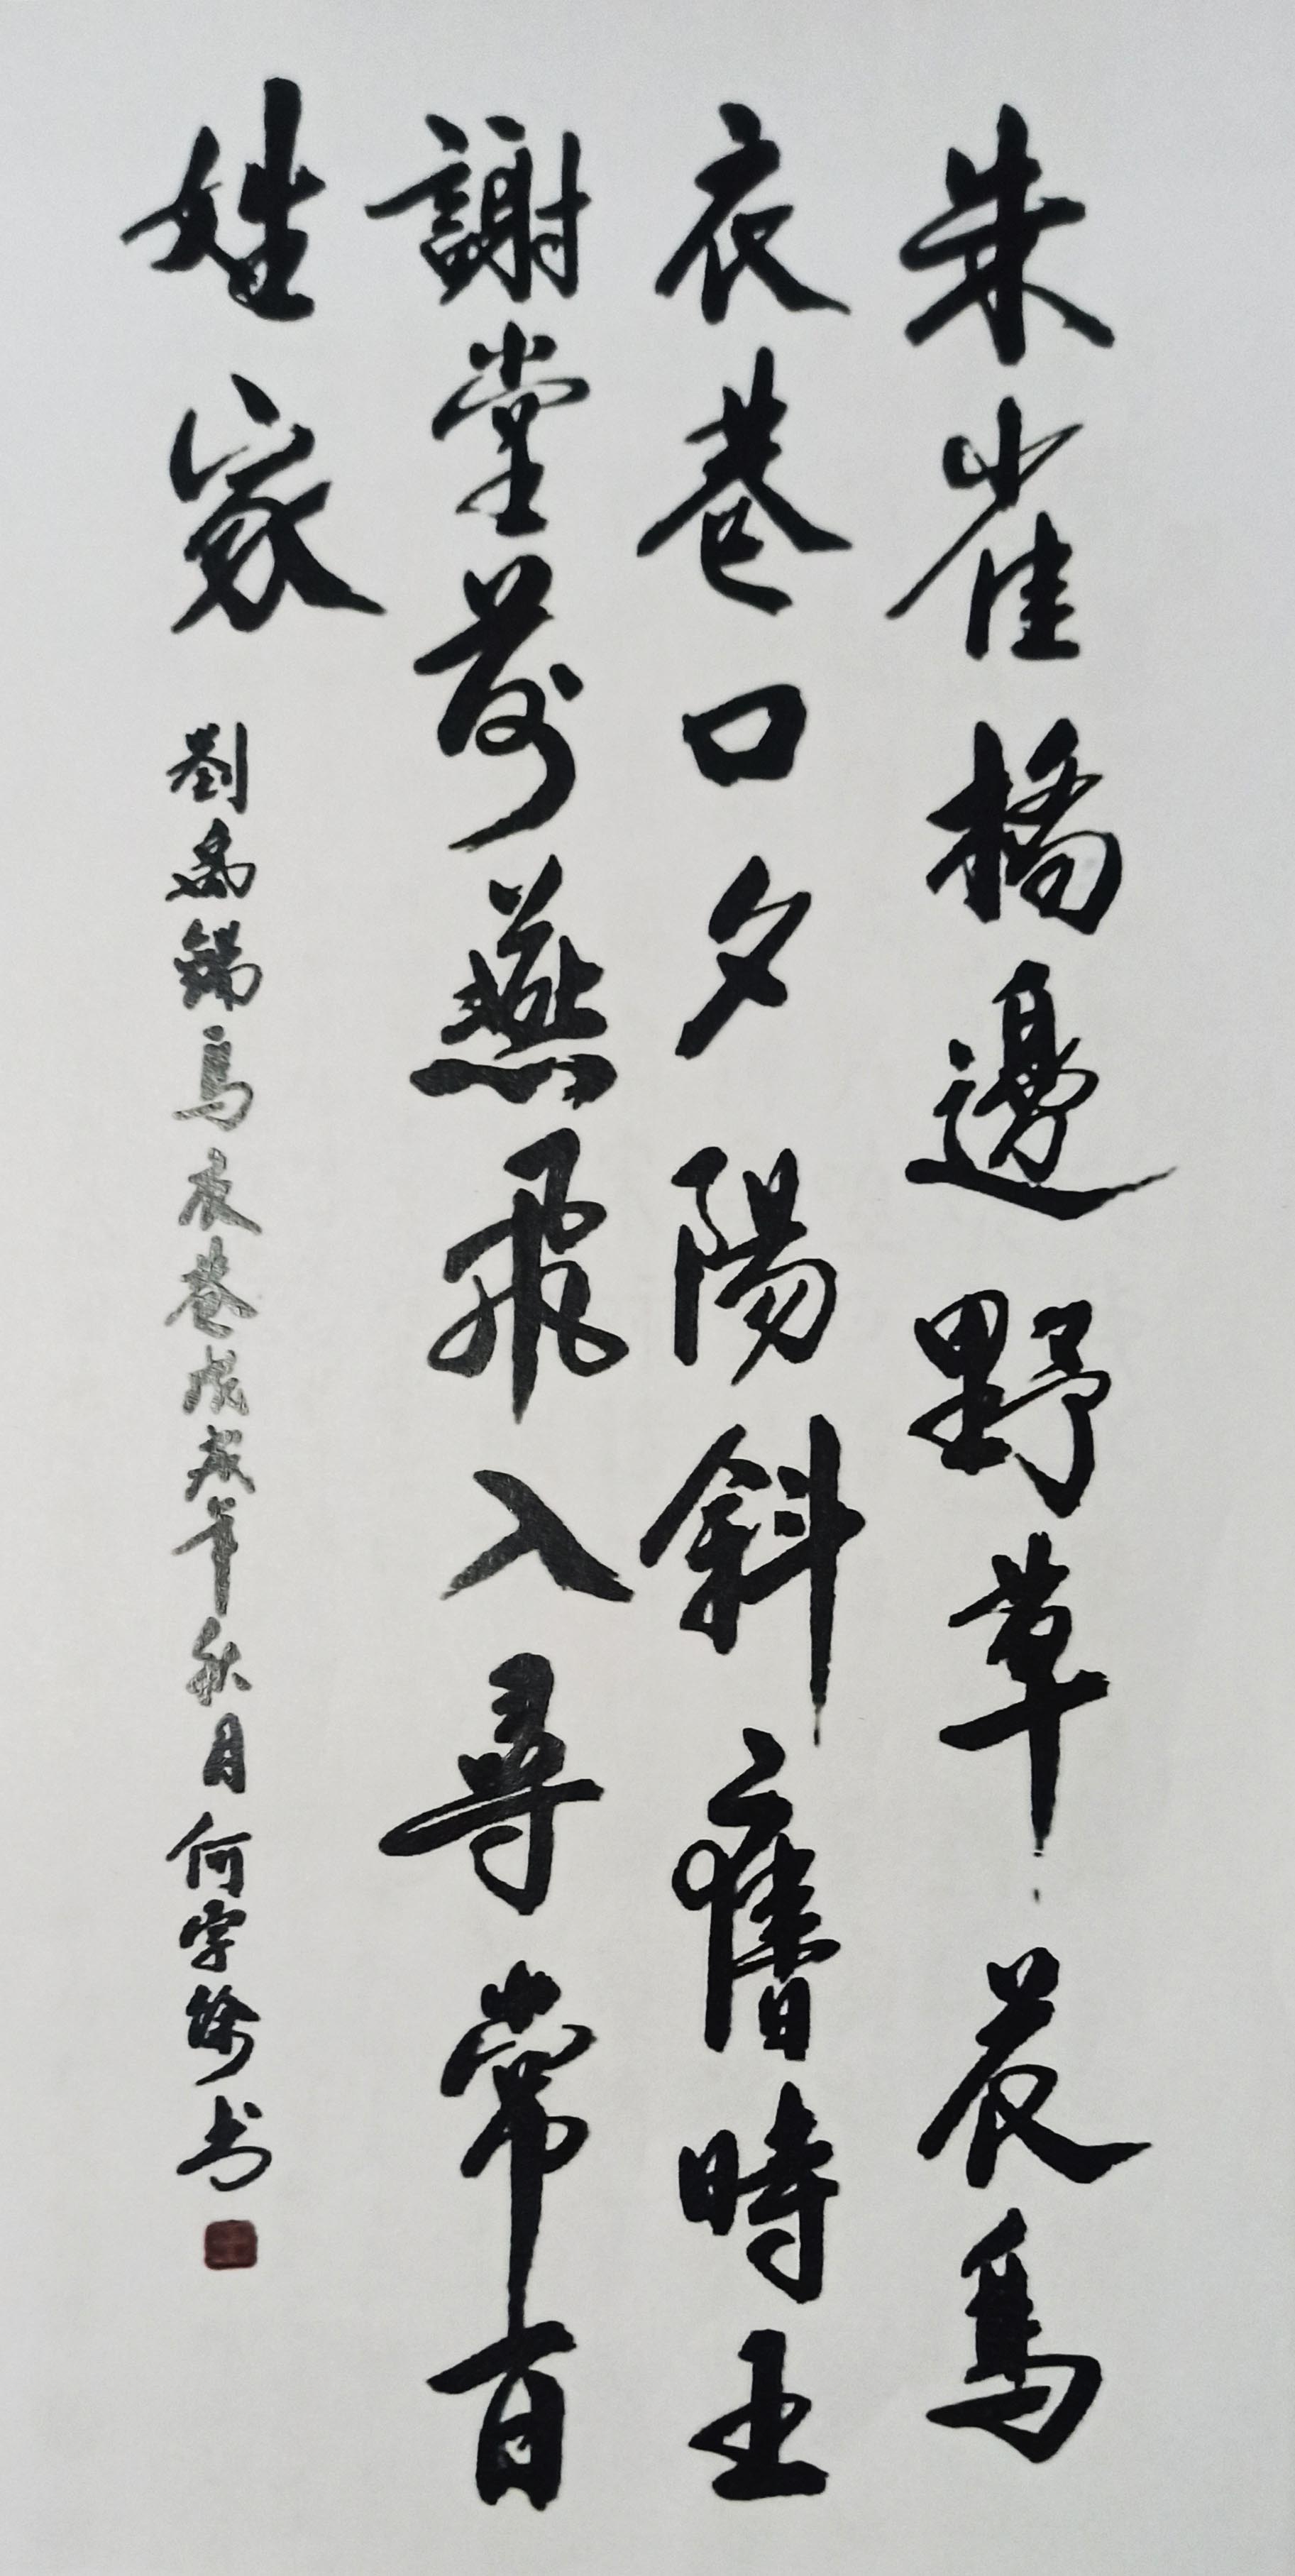 朱雀橋邊野草花烏
衣巷口夕陽斜舊時王
謝堂前燕飛入尋常百
姓家
劉禹錫烏衣巷戊戌年秋月何书